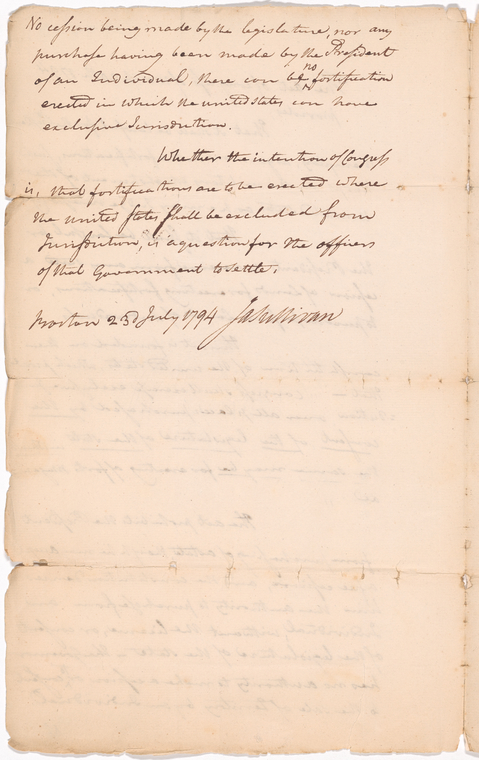 No cession being made by the legislature, nor any
purchase having been made by the President
of an Individual, there can be no fortification
erected in which the united states can have
exclusive Jurisdiction.
Whether the intention of Congress
is, that fortifications are to be erected where
the united States shall be excluded from
Jurisdiction, is a question for the officers
of that Government to settle.
Boston 23d July 1794 Ja Sullivan